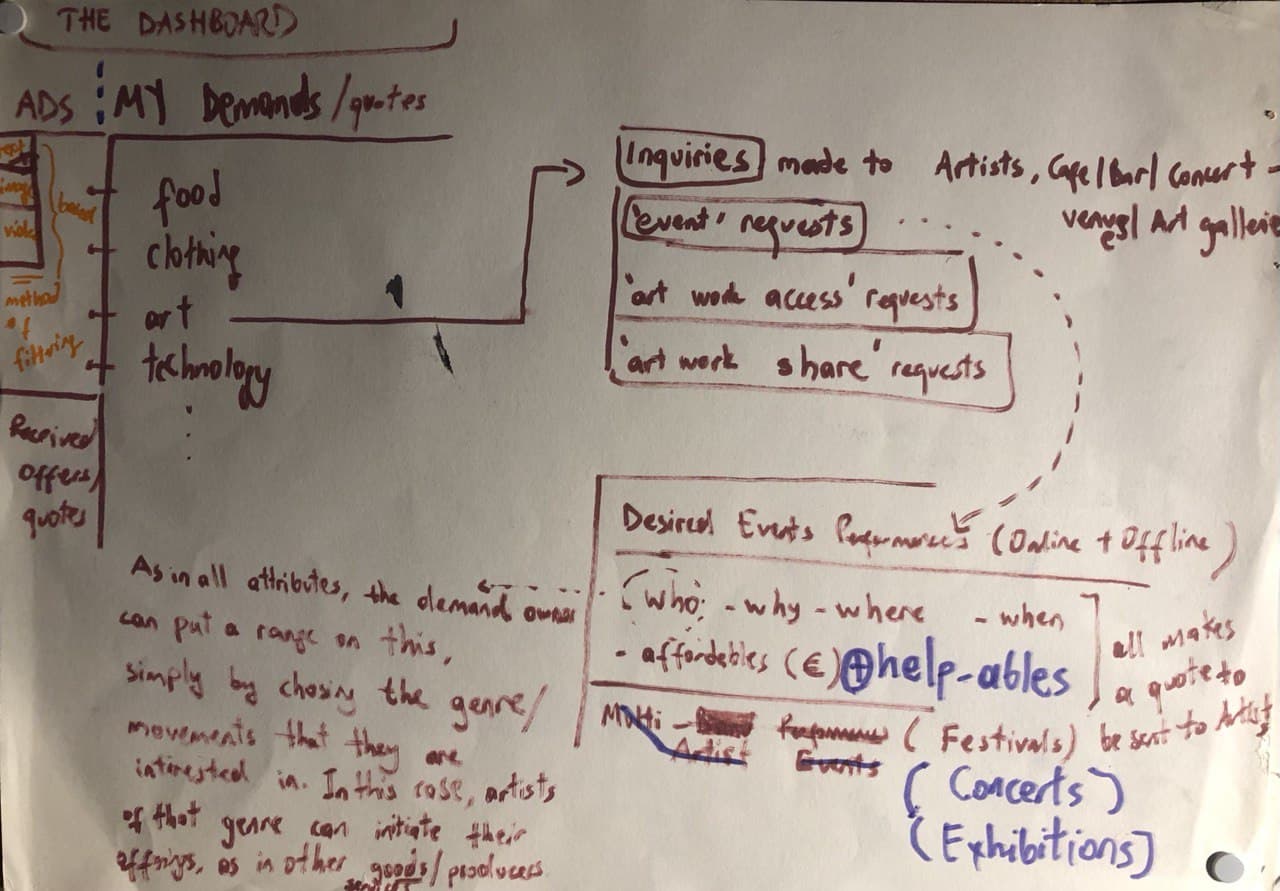 THE DASHBOARD
ADS
MY Demands/quotes
text
image
video
based
method
of
filtring
food
clothing
art
technology
Received
offers/
quotes
Inquiries made to Artists, Cafe/Bar/Concert-
venues/Art gallerie
'event' requests
'art work access' requests
'art work share' requests
Desired Events Performances (Online + Offline)
(Who: -why -where -when
- affordables (€) + help-ables
all makes
a quote to
be sent to Artist
Multi - Artist Performence Events (Festivals)
(Concerts)
(Exhibitions)
As in all attributes, the demand owner
can put a range on this,
simply by chosing the genre/
movements that they are
interested in. In this case, artists
of that genre can initiate their
offrings, as in other goods/producers
services